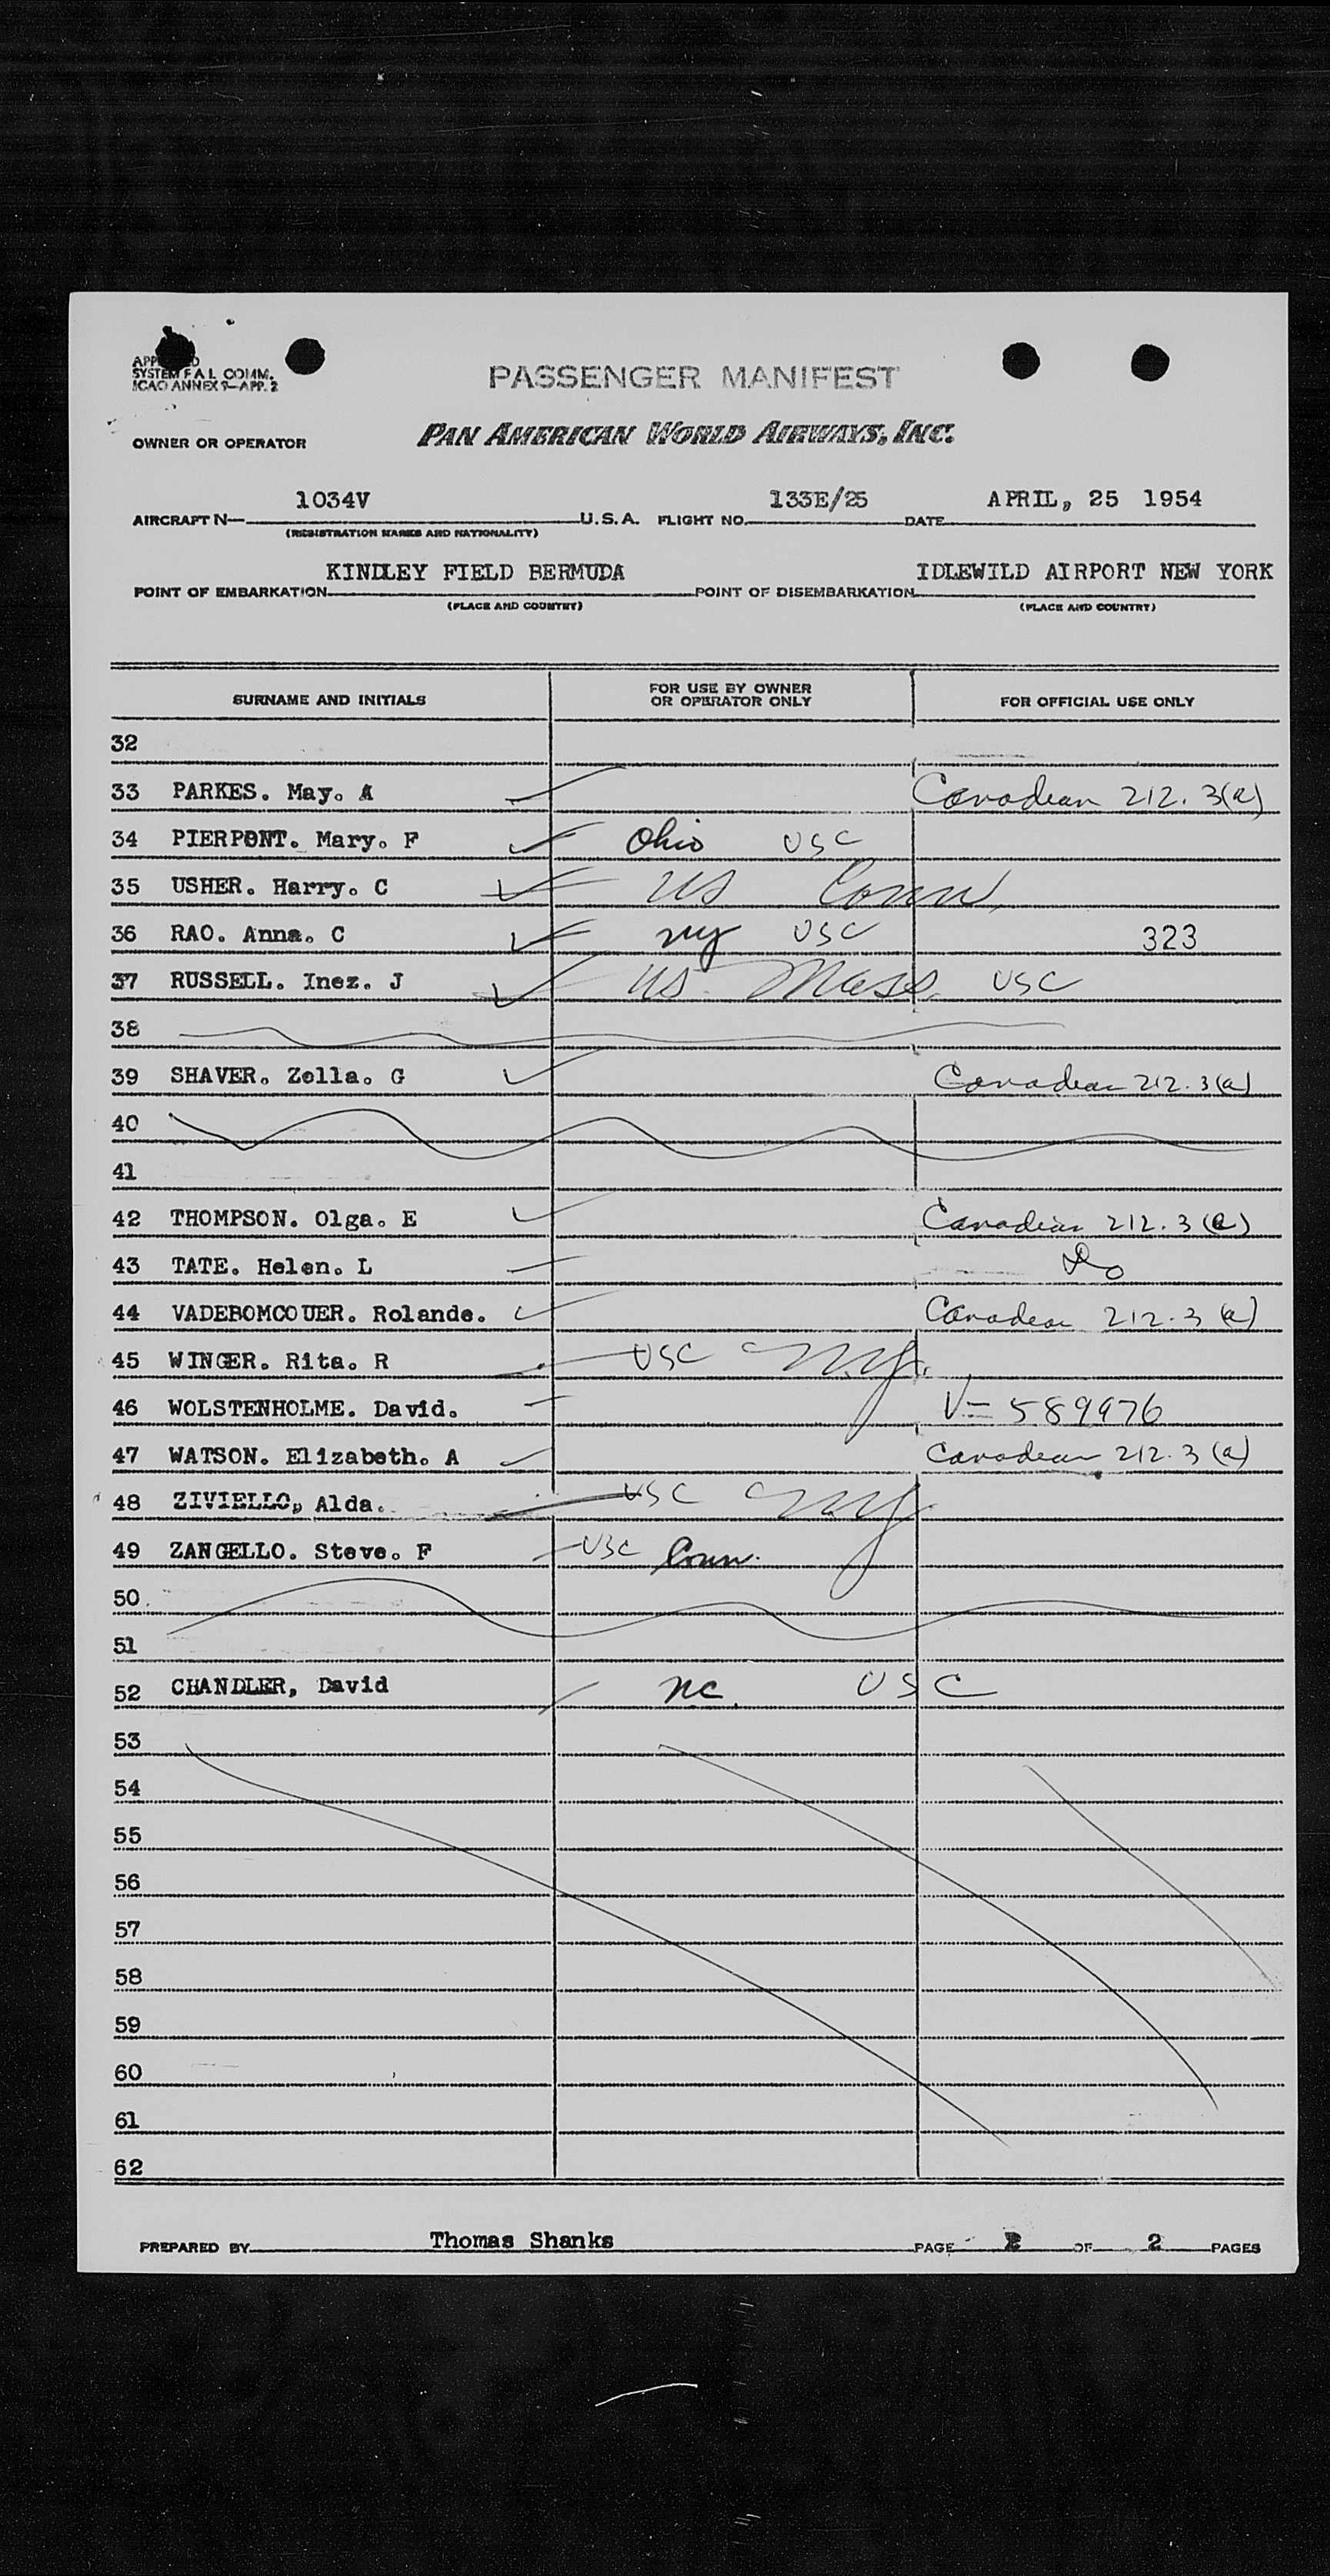 APPROVED
SYSTEM F A L COMM.
ICAO ANNEX 9—APP. 2
PASSENGER MANIFEST
OWNER OR OPERATOR PAN AMERICAN WORLD AIRWAYS, INC.
AIRCRAFT N— 1034V U.S.A. FLIGHT NO. 133E/25 DATE APRIL, 25 1954
(REGISTRATION MARKS AND NATIONALITY)
POINT OF EMBARKATION KINDLEY FIELD BERMUDA POINT OF DISEMBARKATION IDLEWILD AIRPORT NEW YORK
(PLACE AND COUNTRY) (PLACE AND COUNTRY)
SURNAME AND INITIALS FOR USE BY OWNER OR OPERATOR ONLY FOR OFFICIAL USE ONLY
32
33 PARKES. May. A Canadian 212. 3(a)
34 PIERPONT. Mary. F Ohio USC
35 USHER. Harry. C US Conn.
36 RAO. Anna. C NY USC 323
37 RUSSELL. Inez. J US. Mass. USC
38
39 SHAVER. Zella. G Canadian 212.3(a)
40
41
42 THOMPSON. Olga. E Canadian 212.3(a)
43 TATE. Helen. L Do
44 VADEBOMCOUER. Rolande. Canadian 212.3(a)
45 WINGER. Rita. R USC N.Y.
46 WOLSTENHOLME. David. V— 589976
47 WATSON. Elizabeth. A Canadian 212.3(a)
48 ZIVIELLO, Alda. USC NY
49 ZANGELLO. Steve. F USC Conn.
50
51
52 CHANDLER, David NC. USC
53
54
55
56
57
58
59
60
61
62
PREPARED BY Thomas Shanks PAGE 2 OF 2 PAGES